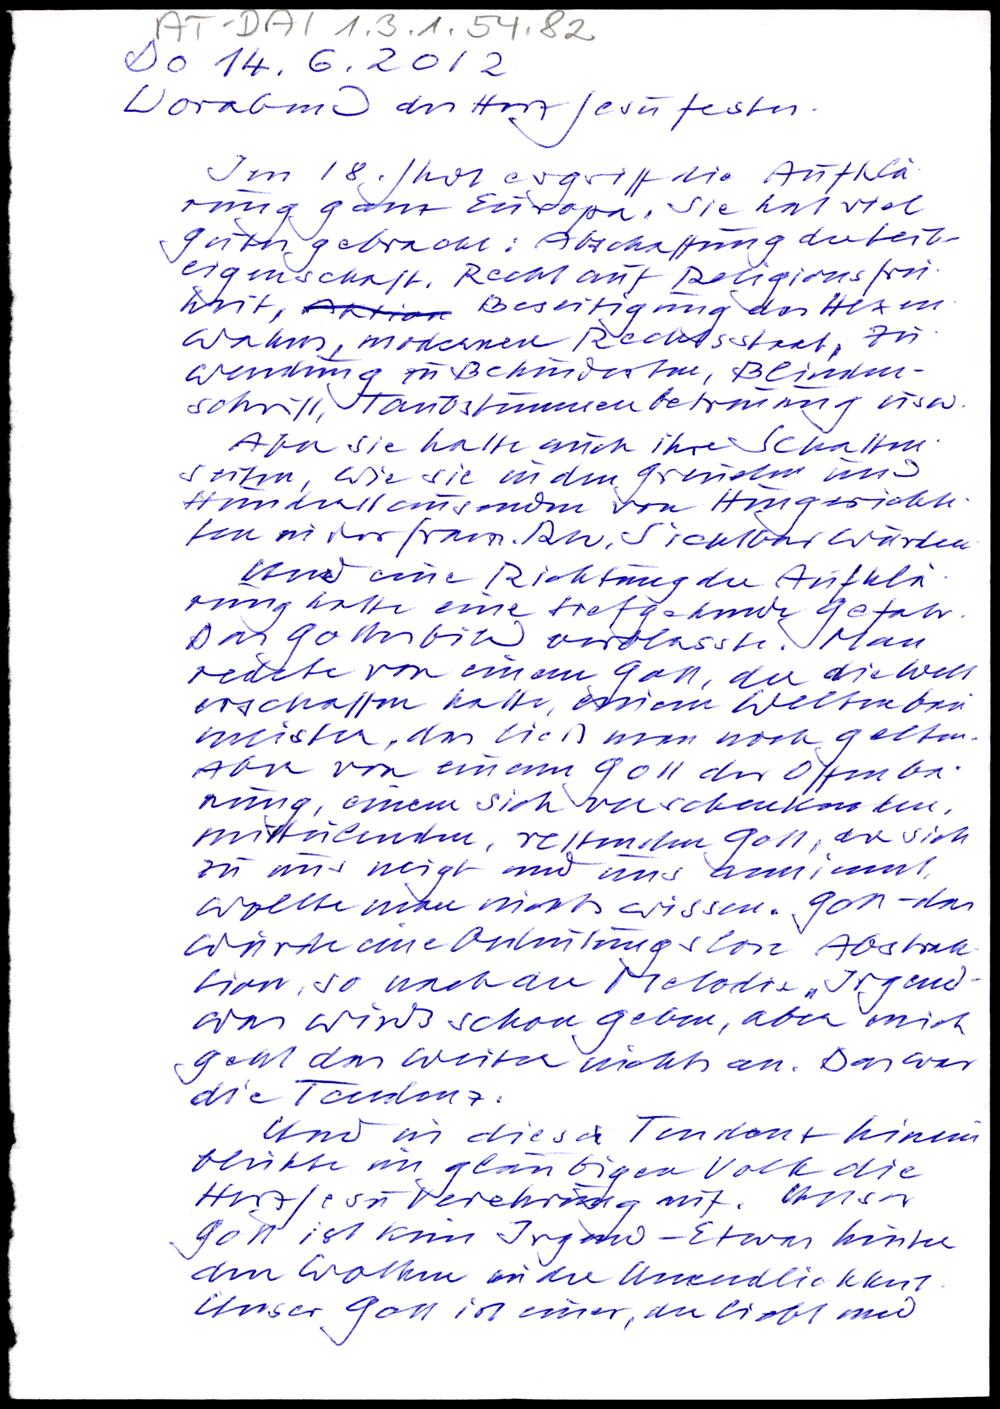 AT-DAI 1.3.1.54.82
Do 14.6.2012
Vorabend des Herz Jesu festes.
Im 18. Jhdt ergriff die Aufklä-
rung ganz Europa. Sie hat viel
Gutes gebracht: Abschaffung der Leib-
eigenschaft, Recht auf Religionsfrei-
heit, Beseitigung des Hexen
wahns, modernen Rechtsstaat, Zu
wendung zu Behinderten, Blinden-
schrift, Taubstummenbetreuung usw.
Aber sie hatte auch ihre Schatten
seiten, wie sie in den Greueln und
Hunderttausenden von Hingerichte
ten in der franz. Rev. sichtbar wurden
Und eine Richtung der Aufklä
rung hatte eine tiefgehende Gefahr.
Das Gottesbild verblasste. Man
redete von einem Gott, der die Welt
erschaffen hatte, einem Weltenbau
meister, das ließ man noch gelten.
Aber von einem Gott der Offenba-
rung, einem sich verschenkenden,
mitteilenden, rettenden Gott, der sich
zu uns neigt und uns annimmt,
wollte man nichts wissen. Gott – das
wurde eine bedeutungslose Abstrak
tion, so nach der Melodie „Irgend-
was wirds schon geben, aber mich
geht das weiter nichts an. Das war
die Tendenz.
Und in diese Tendenz hinein
blühte im gläubigen Volk die
Herz Jesu Verehrung auf. Unser
Gott ist kein Irgend-Etwas hinter
den Wolken in der Unendlichkeit.
Unser Gott ist einer, der liebt und